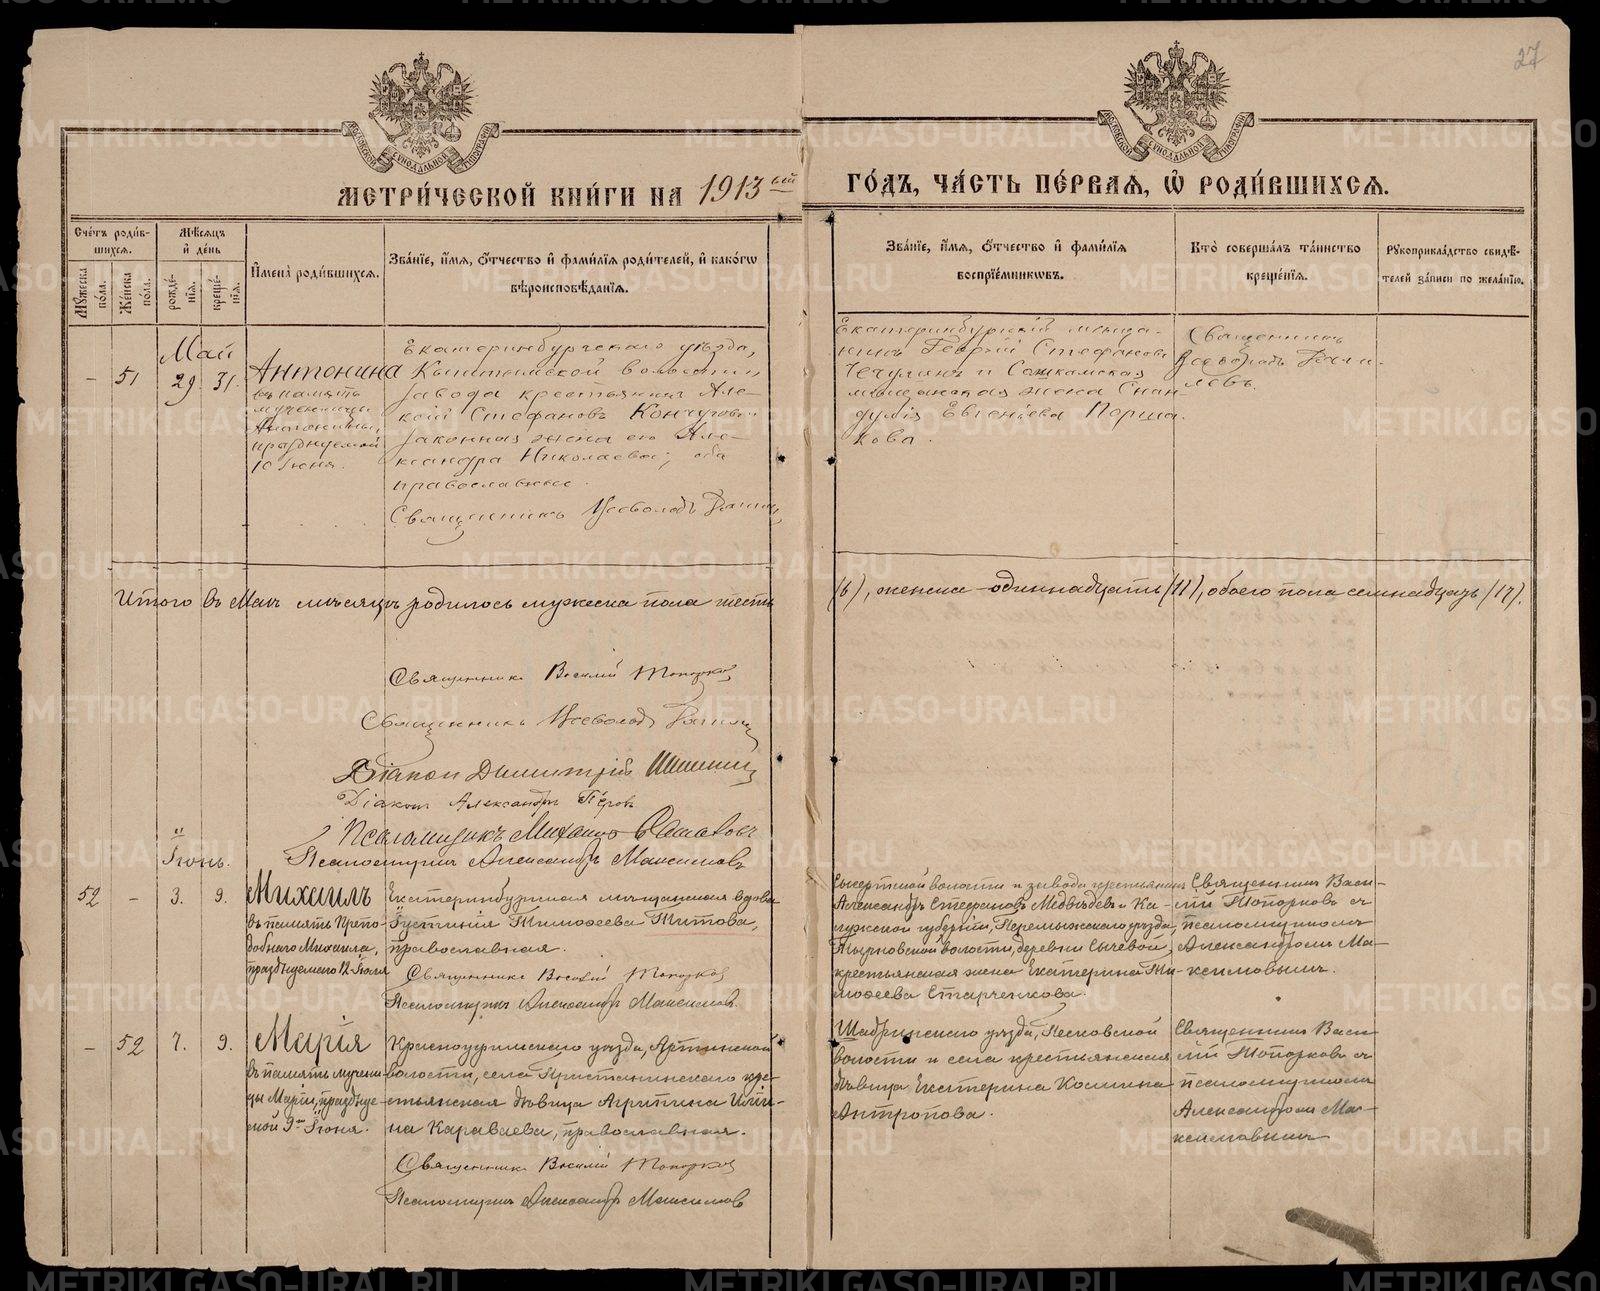 27
МОСКОВСКОЙ СѴНОДАЛЬНОЙ ТИПОГРАФІИ
МОСКОВСКОЙ СѴНОДАЛЬНОЙ ТИПОГРАФІИ
МЕТРИ́ЧЕСКОЙ КНИ́ГИ НА 1913ый
ГО́ДЪ, ЧА́СТЬ ПЕ́РВАѦ, Ѡ҆ РОДИ́ВШИХСѦ.
Сче́тъ роди́в-
шихся.
Мꙋ́жеска по́ла.
Же́нска по́ла.
Мѣ́сяцъ
и҆ де́нь
рожде́-
нїя.
креще́-
нїя.
И҆мена̀ роди́вшихся.
Зва́нїе, и҆́мя, ѻ҆́тчество и҆ фами́лїя роди́телей, и҆ како́гѡ
вѣроисповѣ́данїя.
Зва́нїе, и҆́мя, ѻ҆́тчество и҆ фами́лїя
воспрїе́мникѡвъ.
Кто̀ соверша́лъ та́инство
креще́нїя.
Рꙋкоприкла́дство свидѣ́-
телей за́писи по жела́нїю.
Май
– 51 29 31
Антонина
въ память
мученицы
Антонины,
празднуемой
10 Іюня.
Екатеринбургскаго уѣзда,
Кыштымской волости и
завода крестьянин Але-
ксій Стефановъ
законная жена его Але-
ксандра Николаева; оба
православные.
Священникъ Всеволодъ
Екатеринбургскій мѣща-
нинъ Георгій Стефановъ
Чечулинъ и
мѣщанская жена
Евгеніева Порша-
кова.
Священникъ
Всеволодъ
левъ.
Итого въ Маѣ мѣсяцѣ родилось мужеска пола шесть
(6), женска – одиннадцать (11), обоего пола семнадцать (17).
Священникъ Василій Топорковъ
Священникъ Всеволодъ
Діаконъ Димитрій
Діаконъ Александръ Перовъ
Псаломщикъ Михаилъ
Псаломщикъ Александръ Максимовъ
Іюнь.
52 – 3. 9.
Михаилъ
въ память Препо-
добнаго Михаила,
празднуемаго 12 Іюля
Екатеринбургская мѣщанская вдова
Іустинія Тимофеева Титова,
православная.
Священникъ Василій Топорковъ
Псаломщикъ Александръ Максимовъ
Сысертской волости и завода крестьянинъ
Александръ Стефановъ Медвѣдевъ и Ка-
лужской губерніи, Перемышльскаго уѣзда,
волости, деревни Сычевой,
крестьянская жена Екатерина Ти-
мофеева Старченкова.
Священникъ Васи-
лій Топорковъ съ
псаломщикомъ
Александромъ Ма-
ксимовымъ.
– 52 7. 9.
Марія
въ память мучени-
цы Маріи, праздуе-
мой 9го Іюня.
Красноуфимскаго уѣзда, Артинской
волости, села Пристанинскаго кре-
стьянская дѣвица Агрипина Ильи-
на Караваева, православная.
Священникъ Василій Топорковъ
Псаломщикъ Александръ Максимовъ
Шадринскаго уѣзда, Песковской
волости и села крестьянская
дѣвица Екатерина Космина
Антропова.
Священникъ Васи-
лій Топорковъ съ
псаломщикомъ
Александромъ Ма-
ксимовымъ
METRIKI.GASO-URAL.RU